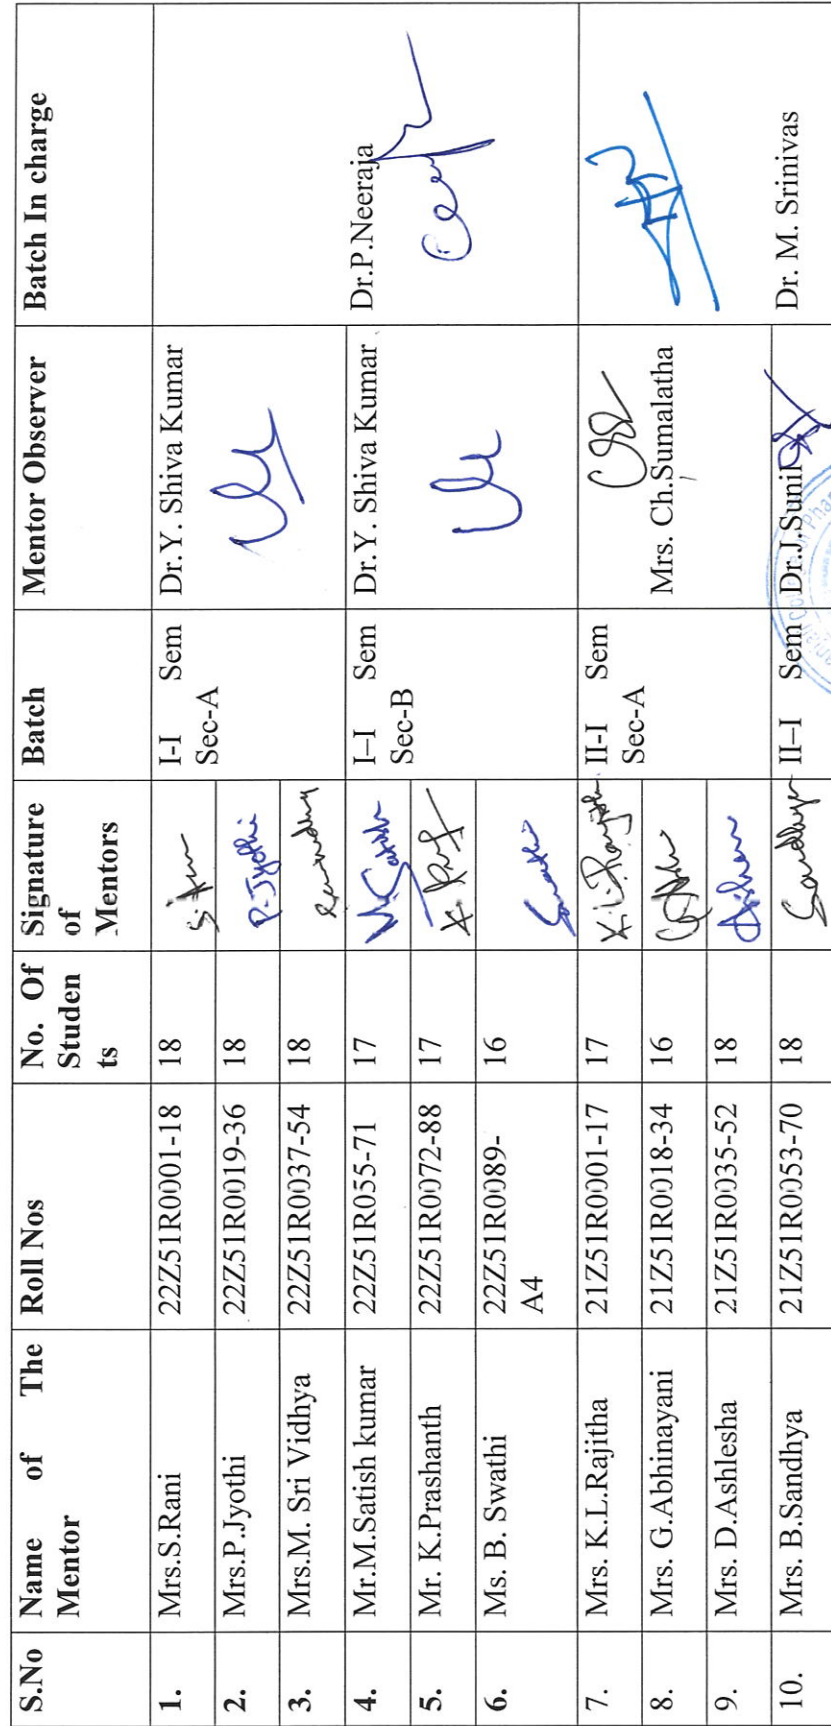 S.No Name of The Mentor Roll Nos No. Of Studen ts Signature of Mentors Batch Mentor Observer Batch In charge
1. Mrs.S.Rani 22Z51R0001-18 18 I-I Sem Sec-A Dr.Y. Shiva Kumar
2. Mrs.P.Jyothi 22Z51R0019-36 18 P.Jyothi
3. Mrs.M. Sri Vidhya 22Z51R0037-54 18
4. Mr.M.Satish kumar 22Z51R055-71 17 M.Satish I–I Sem Sec-B Dr.Y. Shiva Kumar Dr.P.Neeraja
5. Mr. K.Prashanth 22Z51R0072-88 17
6. Ms. B. Swathi 22Z51R0089-A4 16 Swathi
7. Mrs. K.L.Rajitha 21Z51R0001-17 17 K.L.Rajitha II-I Sem Sec-A Mrs. Ch.Sumalatha
8. Mrs. G.Abhinayani 21Z51R0018-34 16
9. Mrs. D.Ashlesha 21Z51R0035-52 18
10. Mrs. B.Sandhya 21Z51R0053-70 18 Sandhya II–I Sem Dr.J.Sunil Dr. M. Srinivas